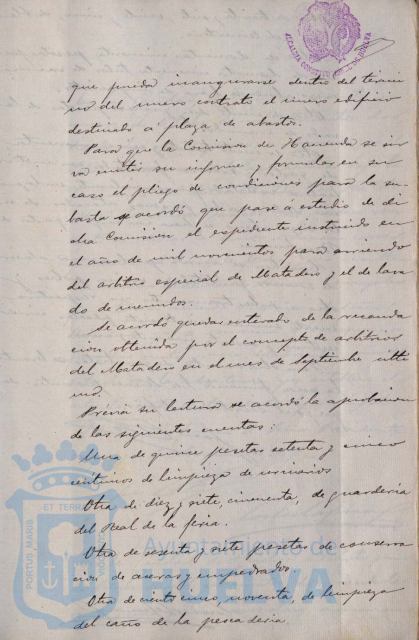 ALCALDIA CONSTITUCIONAL DE HUELVA
que pueda inaugurarse dentro del térmi
no del nuevo contrato el nuevo edificio
destinado á plaza de abastos.
Para que la Comisión de Hacienda se sir
va emitir su informe y formular en su
caso el pliego de condiciones para la su
basta se acordó que pase á estudio de di
cha Comisión el expediente instruido en
el año de mil novecientos para arriendo
del arbitrio especial de Matadero y el de lava
do de menudos.
Se acordó quedar enterado de la recauda
ción obtenida por el concepto de arbitrios
del Matadero en el mes de Septiembre últi
mo.
Previa su lectura se acordó la aprobacion
de las siguientes cuentas:
Una de quince pesetas setenta y cinco
centimos de limpieza de urinarios
Otra de diez y siete, cincuenta, de guarderia
del Real de la feria.
Otra de sesenta y siete pesetas de conserva
ción de aceras y empedrados
Otra de ciento cinco, noventa, de limpieza
del caño de la pescaderia
PORTUS MARIS
ET TERRAE
Ayuntamiento de
HUELVA